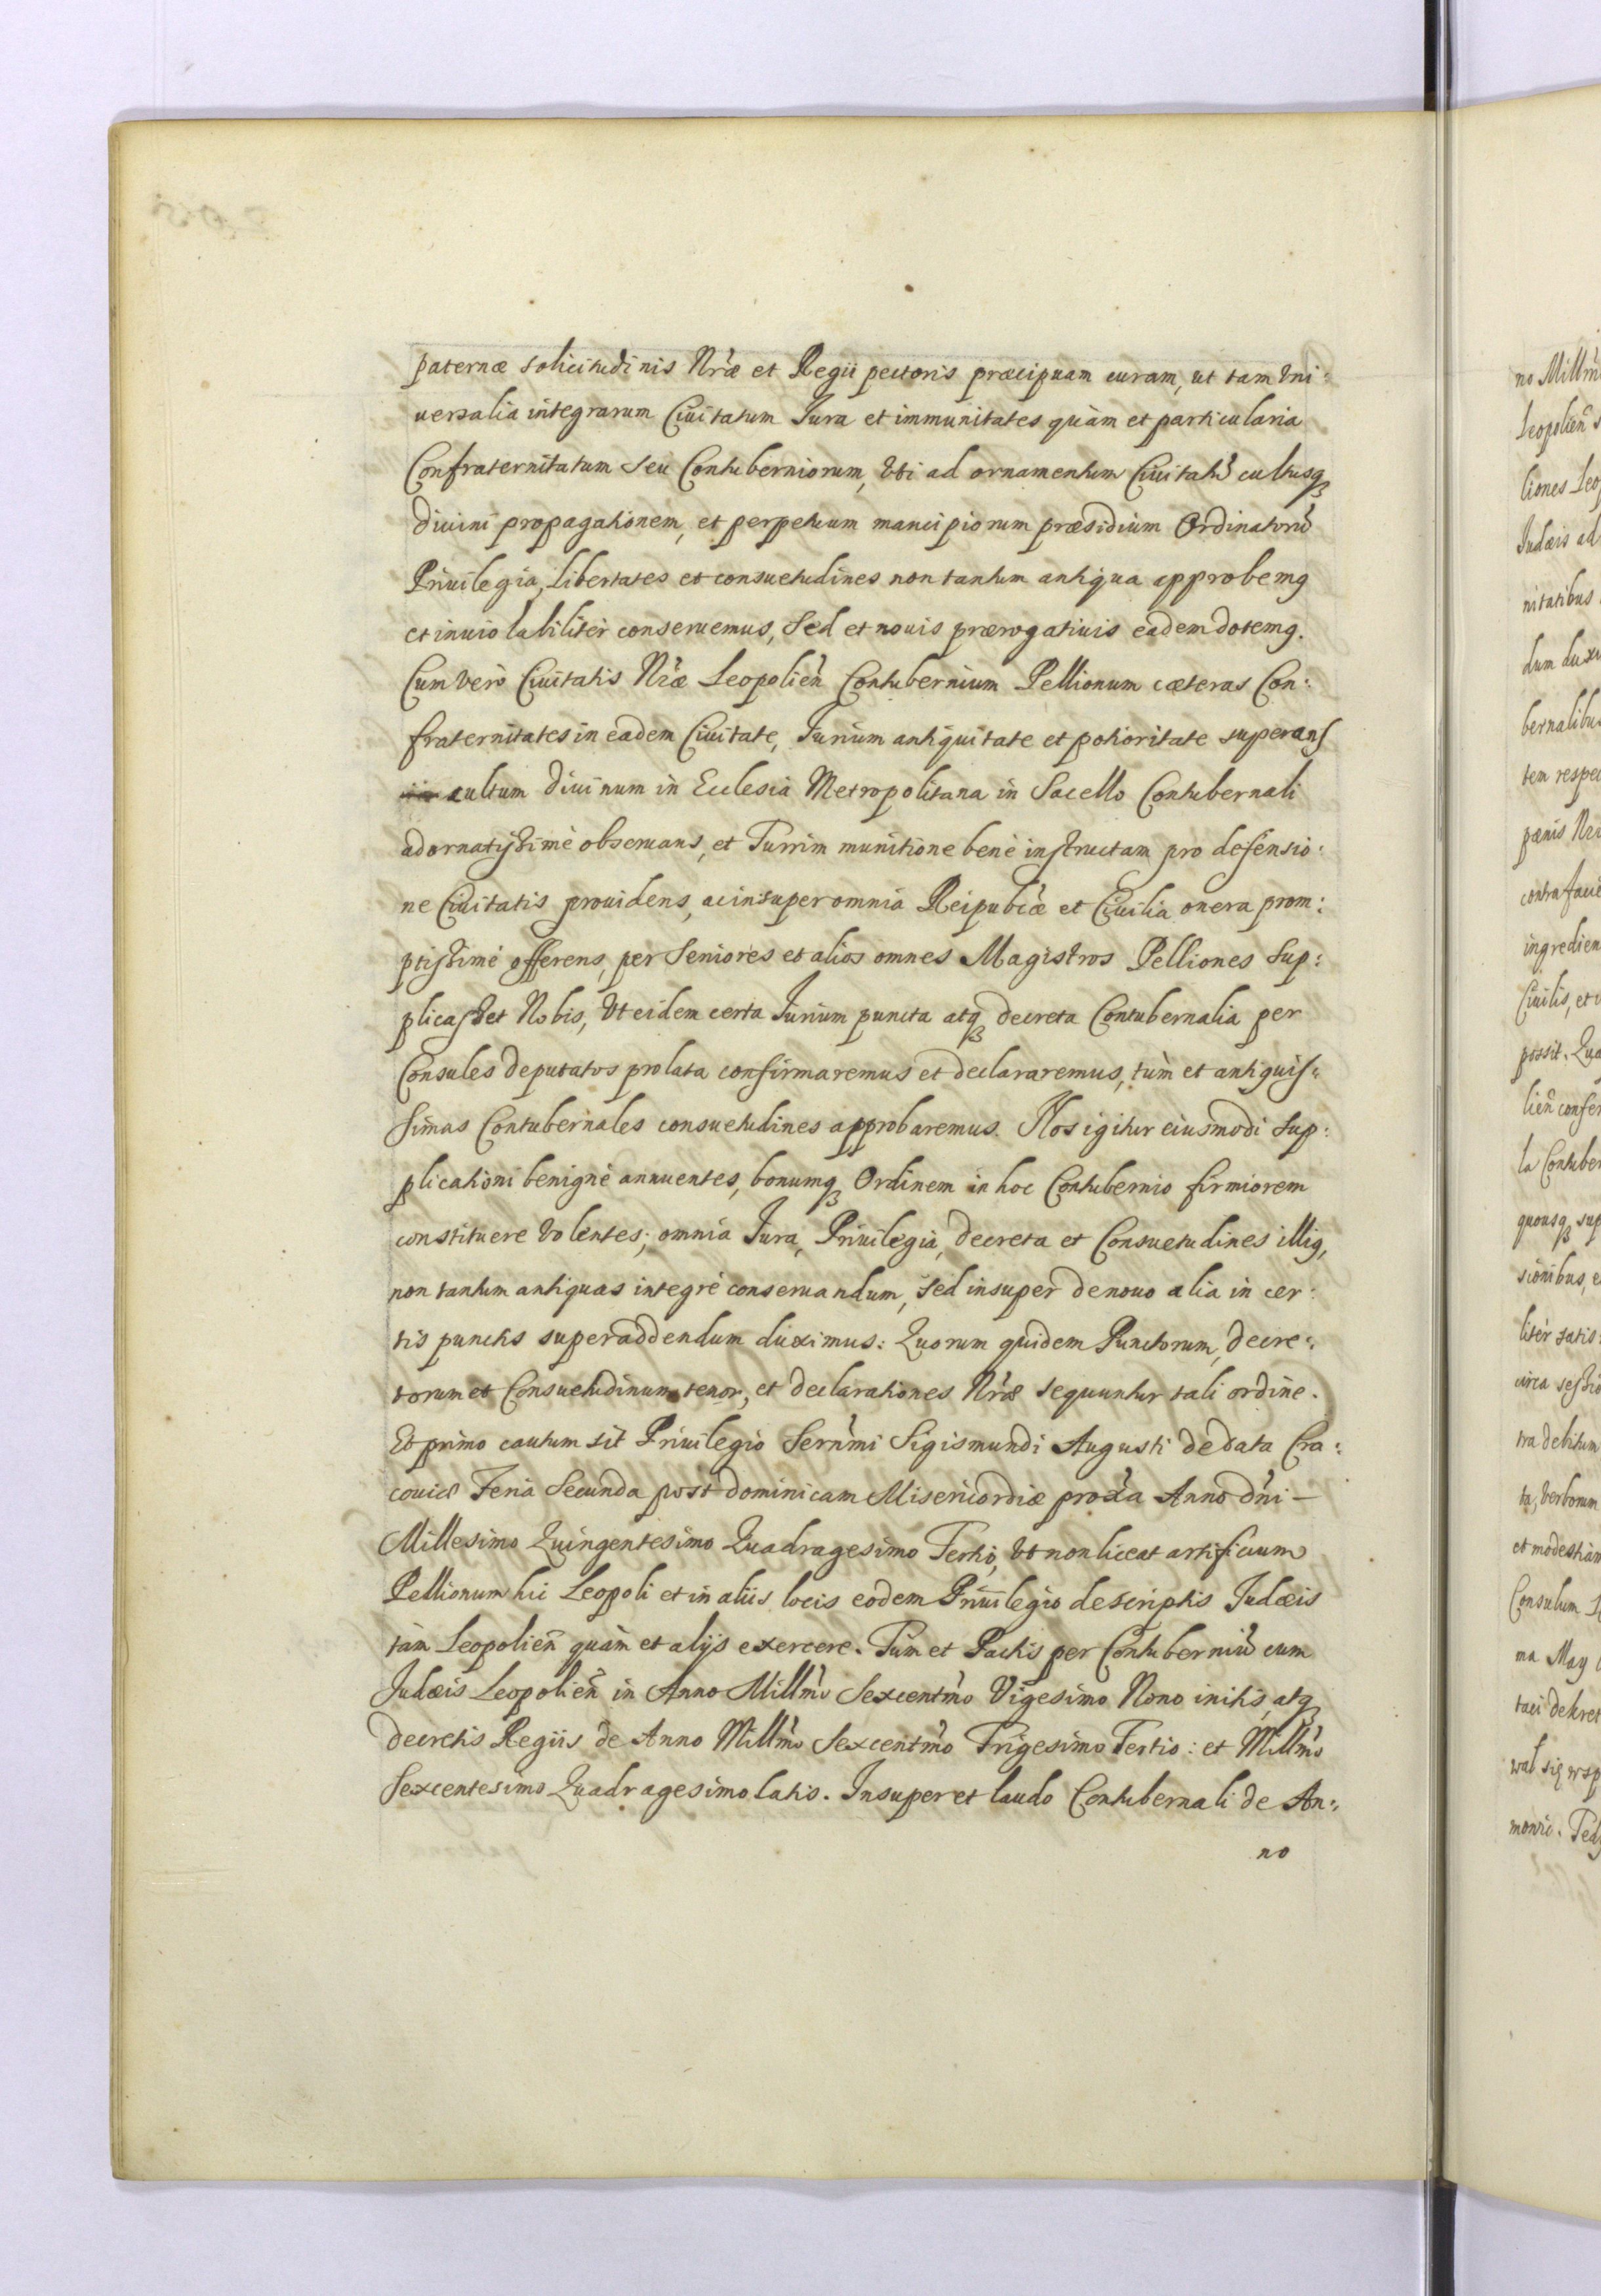 paternæ solicitudinis Nr̃æ et Regii pectoris præcipuam curam, ut tam Vni:
uersalia integrarum Ciuitatum Jura et immunitates quàm et particularia
Confraternitatum seu Contuberniorum, Vti ad ornamentum Ciuitatũ cultusqꝫ
diuini propagationem, et perpetuum mancipiorum præsidium Ordinatorũ
Priuilegia, Libertates et consuetudines non tantum antiqua approbemꝰ
et inuiolabilitèr conseruemus, Sed et nouis prærogatiuis eadem dotemꝰ.
Cum verò Ciuitatis Nr̃æ Leopolień Contubernium Pellionum cæteras Con:
fraternitates in eadem Ciuitate, Jurium antiquitate et potioritate superans
cultum diuinum in Ecclesia Metropolitana in Sacello Contubernali
adornatissimè obseruans, et Turrim munitione benè instructam pro defensio:
ne Ciuitatis prouidens, ac insuper omnia Reipubl̃æ et Ciuilia onera prom:
ptissimè offerens, per Seniores et alios omnes Magistros Pelliones Sup:
plicasset Nobis, Vt eidem certa Jurium puncta atqꝫ decreta Contubernalia per
Consules deputatos prolata confirmaremus et declararemus, tùm et antiquis:
simas Contubernales consuetudines approbaremus. Nos igitur eiusmodi Sup:
plicationi benignè annuentes, bonumqꝫ Ordinem in hoc Contubernio firmiorem
constituere Volentes; omnia Jura, Priuilegia, decreta et Consuetudines illiꝰ,
non tantum antiquas integrè conseruandum, Sed insuper denouo alia in cer:
tis punctis superaddendum duximus: Quorum quidem Punctorum, decre:
torum et Consuetudinum tenor, et declarationes Nr̃æ sequuntur tali ordine.
Et primo cautum sit Priuilegio Serñmi Sigismundi Augusti de data Cra:
couiæ Feria Secunda post dominicam Misericordiæ prox̃a Anno dñi –
Millesimo Quingentesimo Quadragesimo Tertio, Vt non liceat artificium
Pellionum hic Leopoli et in aliis locis eodem Priuilegio descriptis Judæis
tàm Leopolieñ quàm et alijs exercere. Tùm et Pactis per Contuberniũ cum
Judæis Leopolieñ in Anno Millm̃o Sexcentm̃o Vigesimo Nono initis, atqꝫ
decretis Regiis de Anno Millm̃o Sexcentm̃o Trigesimo Tertio: et Millm̃o
Sexcentesimo Quadragesimo latis. Insuper et laudo Contubernali de An:
no
no Millm̃
Leopolieñ
liones Leo
Judæis ad
nitatibus
dum dux
bernalibu
tem respe
pænis Nr
contrafaci
ingredien
Ciuilis, et
possit. Qua
lieñ confer
la Contuber
quousqꝫ sup
sionibus, e
litèr satis
circa sessio
tra debitum
ta, Verborum
et modestiam
Consulum
ma May
taci dekret
wał się wsp
mowic. Ted